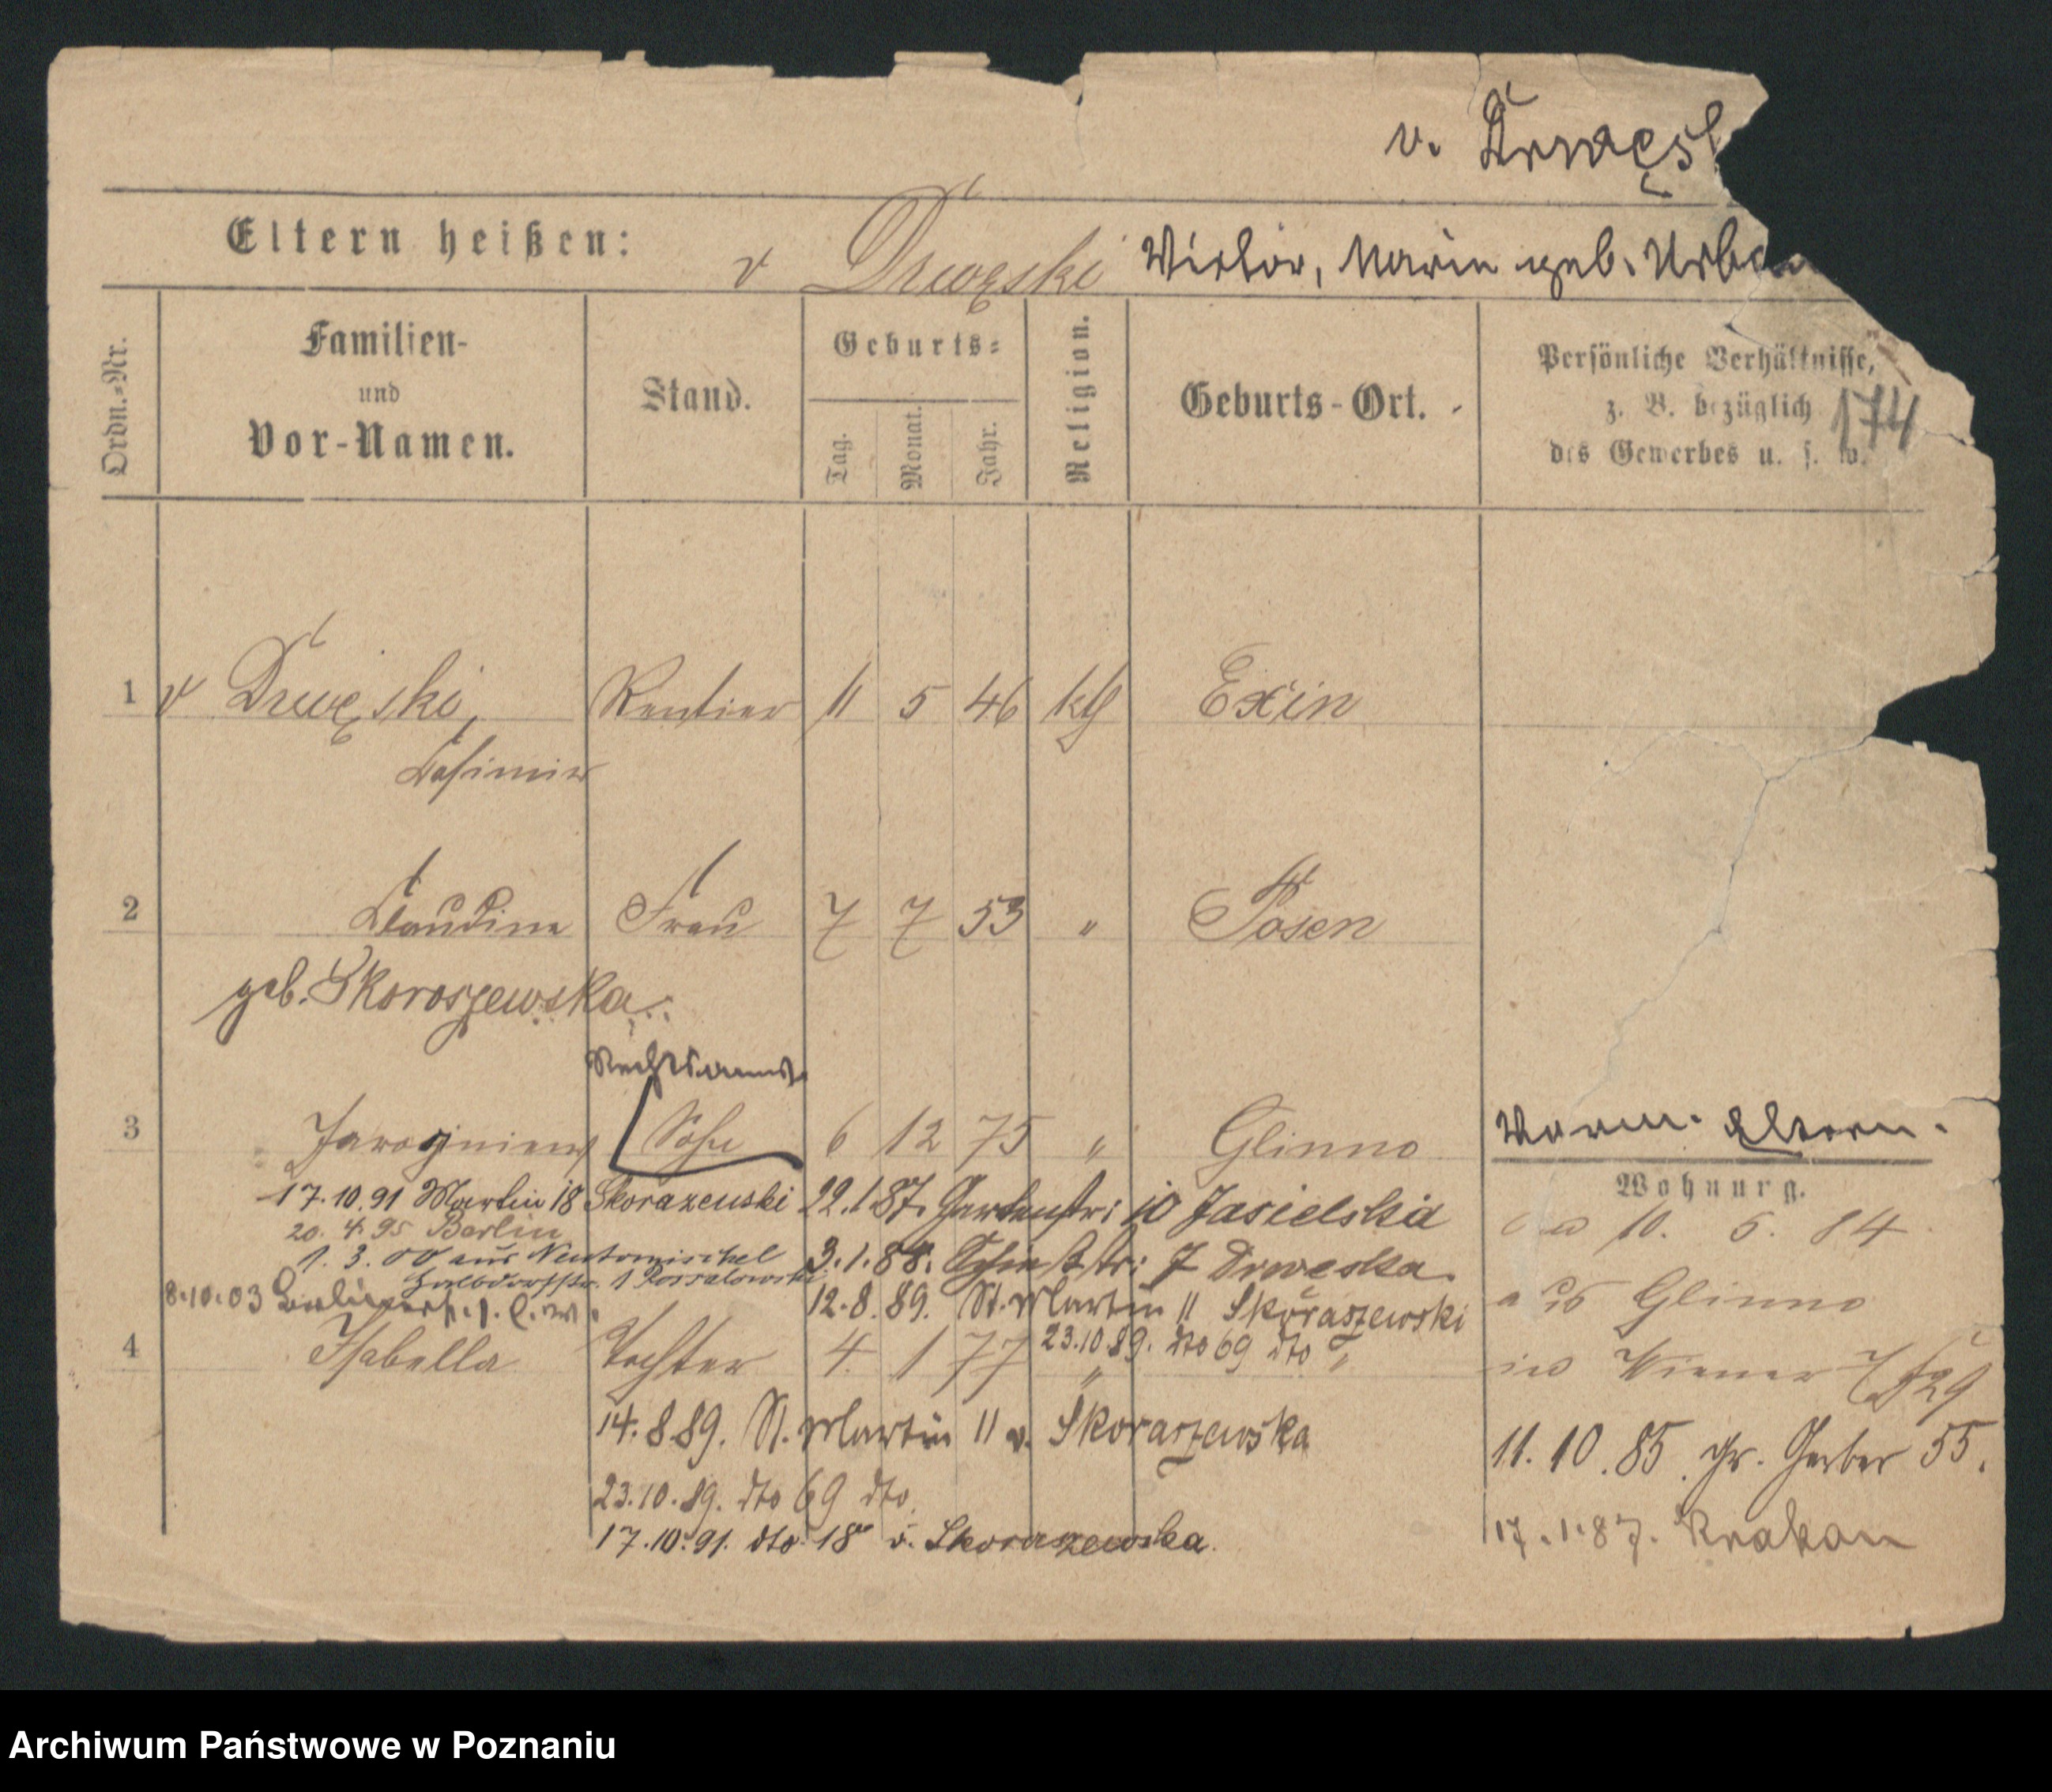 v. Drwęsk
Eltern heißen: v Drwęski Victor, Marie geb. Urba
Ordn.-Nr. Familien- und Vor-Namen. Stand. Geburts- Tag. Monat. Jahr. Religion. Geburts-Ort. Persönliche Verhältnisse, z. B. bezüglich des Gewerbes u. s. w.
174
1 v Drwęski, Rentier 11 5 46 kth Exin
Casimir
2 Claudine Frau 7 7 53 " Posen
geb. Skoroszewska
Rechtsanw.
3 Jarogniew Sohn 6 12 75 " Glinno
Eltern.
17.10.91 Martin 18 Skorazewski 22.1.87. Gartenstr: 10 Jasielska
Wohnung.
20. 4. 95 Berlin
10. 5. 84
1. 3. 00 aus Neutomischel 3.1.88. 7 Drweska
1
8.10.03
12.8.89. St. Martin 11 Skoraszewski
aus Glinno
23.10.89. dto 69 dto "
4 Isabella Tochter 4 1 77 "
Wiener
14.8.89. St. Martin 11 v. Skoraszewska
11.10.85. gr. Gerber 55.
23.10.89. dto 69 dto
17.10.91. dto 18 v. Skorazewska.
17.1.87. Krakau
Archiwum Państwowe w Poznaniu